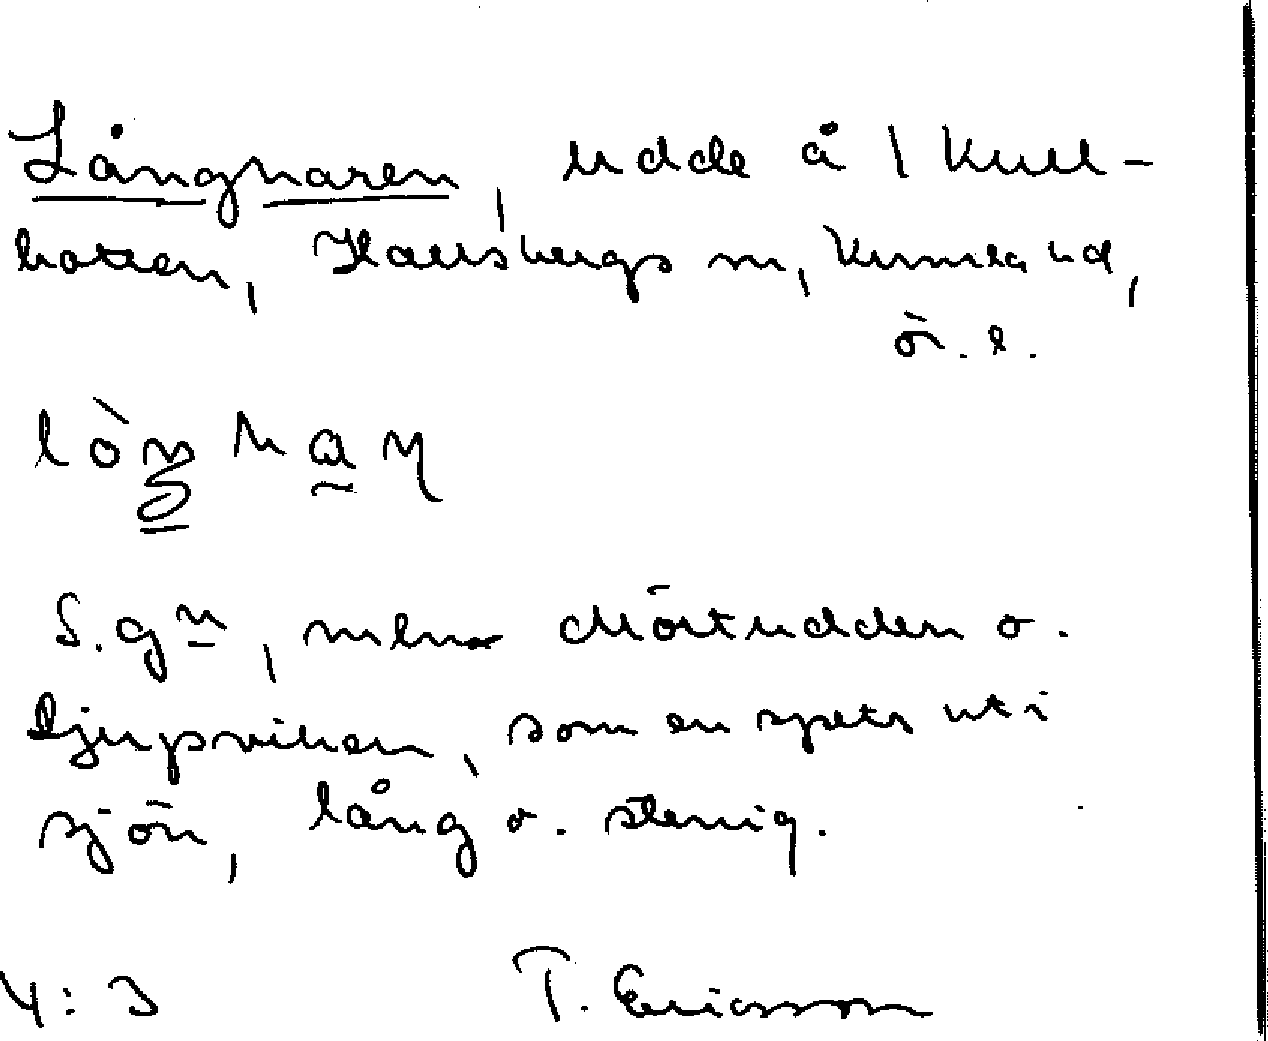 Långnaren, udde å 1 Kull-
botten, Hallsbergs sn, Kumla hd,
ör. l.
S. g<sup>m</sup>, mln Mörtudden o.
Djupviken, som en spets ut i
sjön, lång o. stenig.
4:3 T. Ericsson